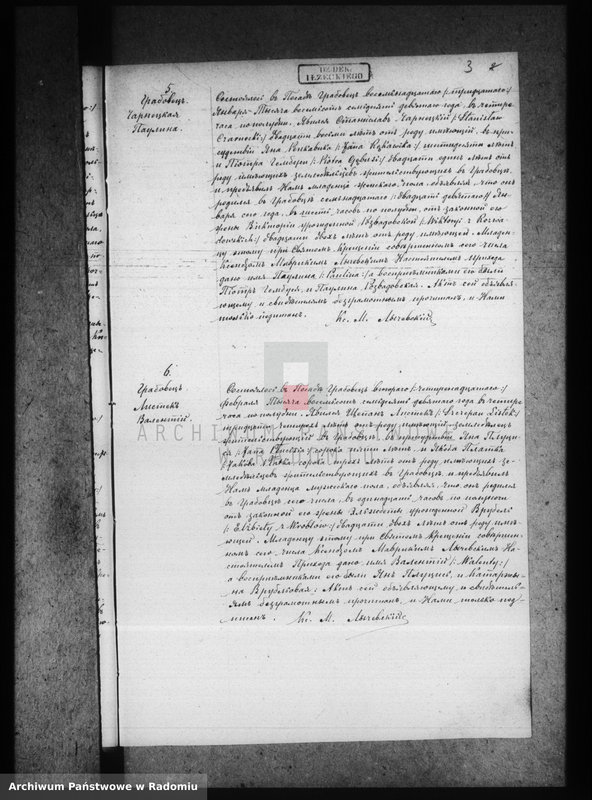 3
URZ. DEK.
IŁŻECKIEGO
5
Грабовецъ.
Чарнецкая
Паулина.
Состоялось въ Посадѣ Грабовецъ восемнадцатаго /:тридцатаго:/
Января Тысяча восемьсотъ семьдесятъ девятаго года, въ четыре
часа по полудни. Явился Станиславъ Чарнецкій /: Stanisław
Czarnecki :/ двадцати восьми лѣтъ отъ роду имѣющій, въ при-
сутствіи Яна /: Jana
и Піотра /: Piotra двадцати лѣтъ отъ
роду имѣющихъ, земледѣльцевъ жительствующихъ въ Грабовцѣ,
и предъявилъ Намъ младенца женскаго пола, объявляя, что онъ
родился въ Грабовцѣ семнадцатаго /: двадцать девятаго :/ Ян-
варя сего года, въ шесть часовъ по полудни, отъ законной его
жены Викторіи урожденной /: Wiktoryi z
двадцати двухъ лѣтъ отъ роду имѣющей. Младен-
цу этому при Святомъ Крещеніи совершенномъ сего числа
Ксендзомъ Маврикіемъ Лычевскимъ Настоятелемъ Прихода
дано имя Паулина /: Paulina :/ а воспріемниками его были
Піотръ и Паулина Актъ сей объявля-
ющему и свидѣтелямъ безграмотнымъ прочитанъ, и Нами
только подписанъ. Кс. М. Лычевскій
6.
Грабовецъ.
Листекъ
Валентій.
Состоялось въ Посадѣ Грабовецъ втораго /: четырнадцатаго :/
Февраля Тысяча восемьсотъ семьдесятъ девятаго года въ четыре
часа по полудни. Явился Щепанъ Листекъ /: Szczepan Listek :/
тридцати четырехъ лѣтъ отъ роду имѣющій, земледѣлецъ
жительствующій въ Грабовцѣ, въ присутствіи Яна
/: Jana сорока пяти лѣтъ, и Якоба
/: Jakóba сорока трехъ лѣтъ отъ роду имѣющихъ зе-
мледѣльцевъ жительствующихъ въ Грабовцѣ, и предъявилъ
Намъ младенца мужескаго пола, объявляя, что онъ родился
въ Грабовцѣ сего числа, въ одинадцать часовъ по полуночи
отъ законной его жены Елзбеты урожденной Врубель
/: Elżbiety z Wróblów :/ двадцати двухъ лѣтъ отъ роду имѣ-
ющей. Младенцу этому при Святомъ Крещеніи совершен-
номъ сего числа Ксендзомъ Маврикіемъ Лычевскимъ На-
стоятелемъ Прихода дано имя Валентій /: Walenty :/
а воспріемниками его были Янъ и Катаржи-
на Врублёвая. Актъ сей объявляющему и свидѣтел-
ямъ безграмотнымъ прочитанъ, и Нами только под-
писанъ. Кс. М. Лычевскій
Archiwum Państwowe w Radomiu